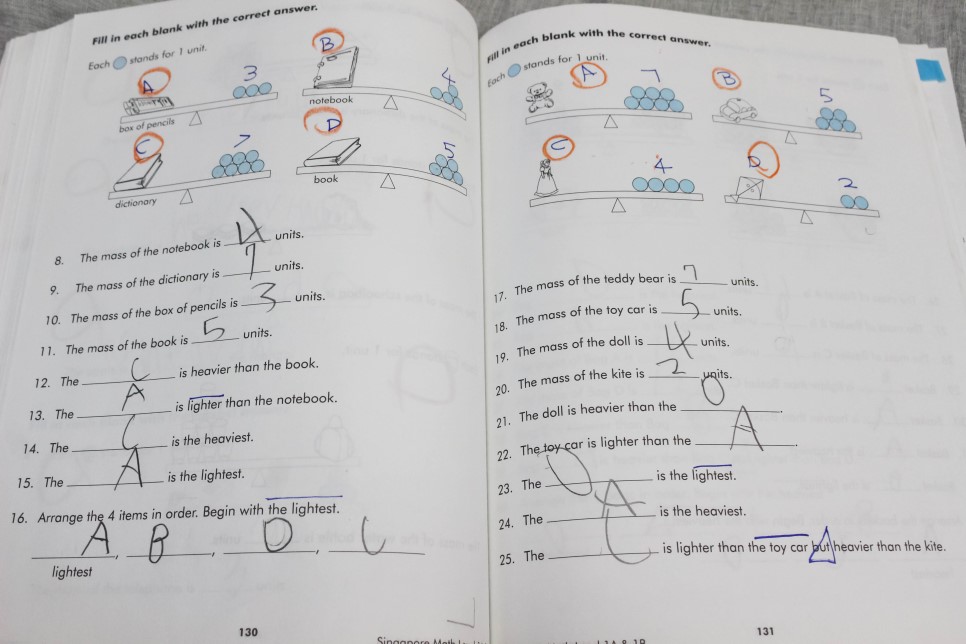 Fill in each blank with the correct answer.
Each stands for 1 unit.
A 3
box of pencils
B 4
notebook
C 7
dictionary
D 5
book
8. The mass of the notebook is 4 units.
9. The mass of the dictionary is 7 units.
10. The mass of the box of pencils is 3 units.
11. The mass of the book is 5 units.
12. The C is heavier than the book.
13. The A is lighter than the notebook.
14. The C is the heaviest.
15. The A is the lightest.
16. Arrange the 4 items in order. Begin with the lightest.
A, B, D, C
lightest
130
Fill in each blank with the correct answer.
Each stands for 1 unit.
A 7
B 5
C 4
D 2
17. The mass of the teddy bear is 7 units.
18. The mass of the toy car is 5 units.
19. The mass of the doll is 4 units.
20. The mass of the kite is 2 units.
21. The doll is heavier than the D.
22. The toy car is lighter than the A.
23. The D is the lightest.
24. The A is the heaviest.
25. The C is lighter than the toy car but heavier than the kite.
131